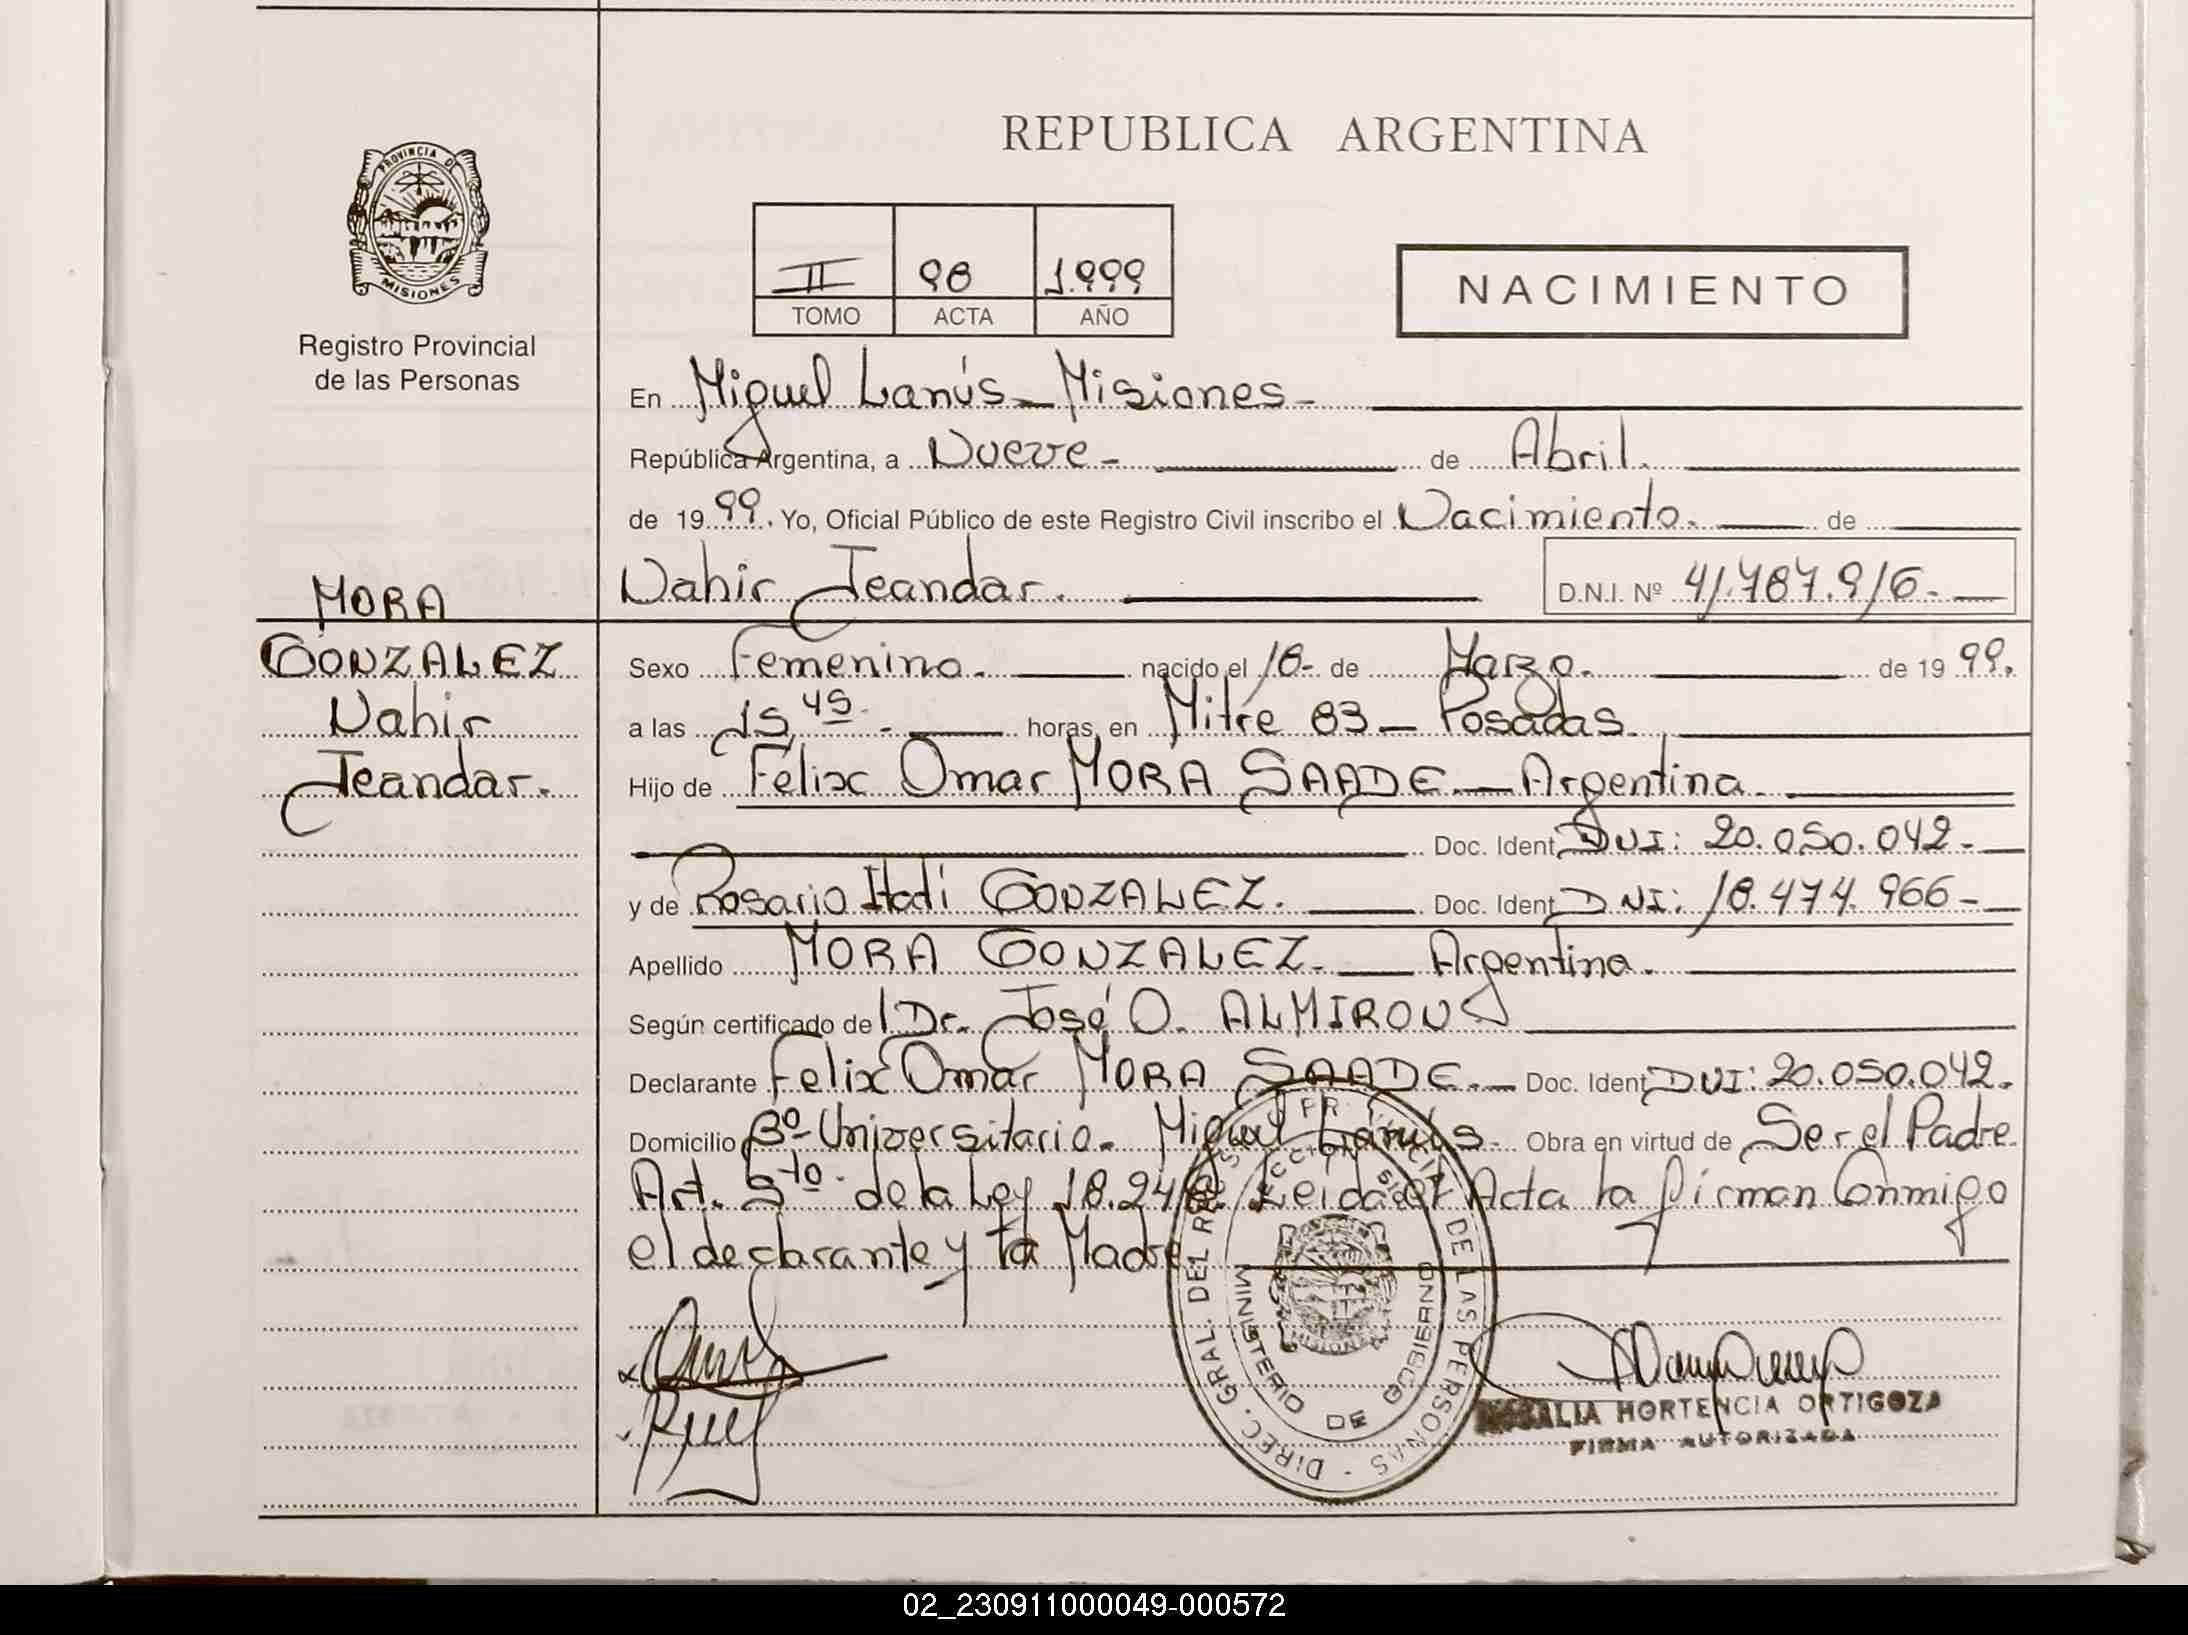 REPUBLICA ARGENTINA
PROVINCIA DE
MISIONES
Registro Provincial
de las Personas
II 98 1.999
TOMO ACTA AÑO
NACIMIENTO
En Miguel Lanús - Misiones -
República Argentina, a Nueve - de Abril.
de 1999. Yo, Oficial Público de este Registro Civil inscribo el Nacimiento. de
Nahir Jeandar. D.N.I. Nº 41.787.916.-
MORA
GONZALEZ
Nahir
Jeandar.
Sexo Femenino. nacido el 18- de Marzo. de 1999.
a las 15,45 - horas, en Mitre 83 - Posadas.
Hijo de Félix Omar MORA SAADE. - Argentina.
Doc. Ident DNI: 20.050.042-
y de Rosario Itatí GONZALEZ. Doc. Ident DNI: 18.474.966-
Apellido MORA GONZALEZ. Argentina.
Según certificado del Dr. José O. ALMIRON
Declarante Felix Omar MORA SAADE. - Doc. Ident DNI: 20.050.042.
Domicilio Bº Universitario. Miguel Lanús - Obra en virtud de Ser el Padre.
Art. 5to. de la Ley 18.248. Leída el Acta la firman Conmigo
el declarante y la Madre.
DIREC. GRAL. DEL REGISTRO PROVINCIAL DE LAS PERSONAS -
MINISTERIO DE GOBIERNO
MISIONES
HORTENCIA ORTIGOZA
FIRMA AUTORIZADA
02_230911000049-000572